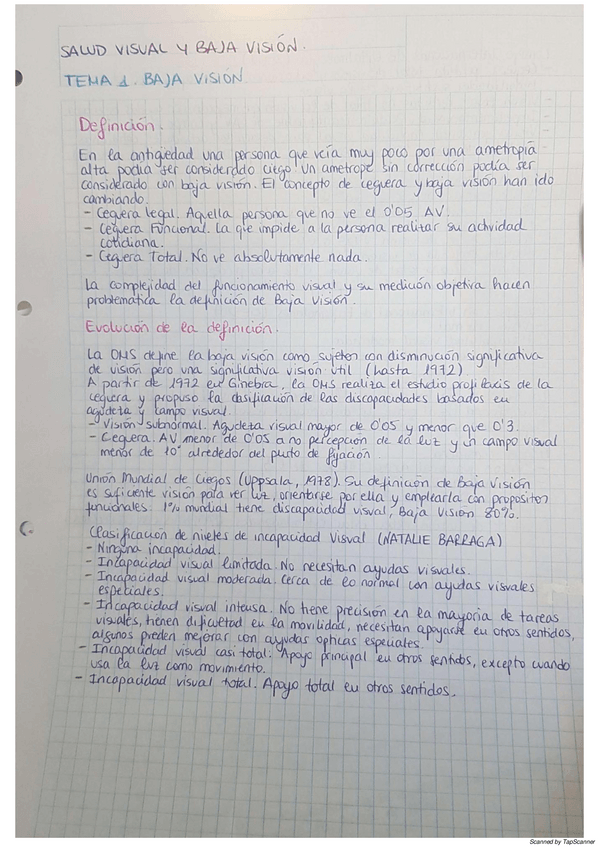 SALUD VISUAL Y BAJA VISIÓN.
TEMA 1. BAJA VISIÓN
Definición.
En la antigüedad una persona que veía muy poco por una ametropía
alta podía ser considerado ciego. Un ametrope sin corrección podía ser
considerado con baja visión. El concepto de ceguera y baja visión han ido
cambiando.
- Ceguera legal. Aquella persona que no ve el 0'05 AV.
- Ceguera Funcional. La que impide a la persona realizar su actividad
cotidiana.
- Ceguera Total. No ve absolutamente nada.
La complejidad del funcionamiento visual y su medición objetiva hacen
problemática la definición de Baja Visión.
Evolución de la definición.
La OMS define la baja visión como sujetos con disminución significativa
de visión pero una significativa visión útil (hasta 1972)
A partir de 1972 en Ginebra, la OMS realiza el estudio profilaxis de la
ceguera y propuso la clasificación de las discapacidades basados en
agudeza y campo visual.
- Visión subnormal. Agudeza visual mayor de 0'05 y menor que 0'3.
- Ceguera. AV menor de 0'05 a no percepción de la luz y un campo visual
menor de 10° alrededor del punto de fijación.
Unión Mundial de Ciegos (Uppsala, 1978). Su definición de Baja Visión
es suficiente visión para ver luz, orientarse por ella y emplearla con propositos
funcionales. 1% mundial tiene discapacidad visual, Baja Visión 80%.
Clasificación de niveles de incapacidad Visual (NATALIE BARRAGA)
- Ninguna incapacidad.
- Incapacidad visual limitada. No necesitan ayudas visuales.
- Incapacidad visual moderada. Cerca de lo normal con ayudas visuales
especiales.
- Incapacidad visual intensa. No tiene precisión en la mayoría de tareas
visuales, tienen dificultad en la movilidad, necesitan apoyarse en otros sentidos,
algunos pueden mejorar con ayudas opticas especiales.
- Incapacidad visual casi total. Apoyo principal en otros sentidos, excepto cuando
usa la luz como movimiento.
- Incapacidad visual total. Apoyo total en otros sentidos.
Scanned by TapScanner